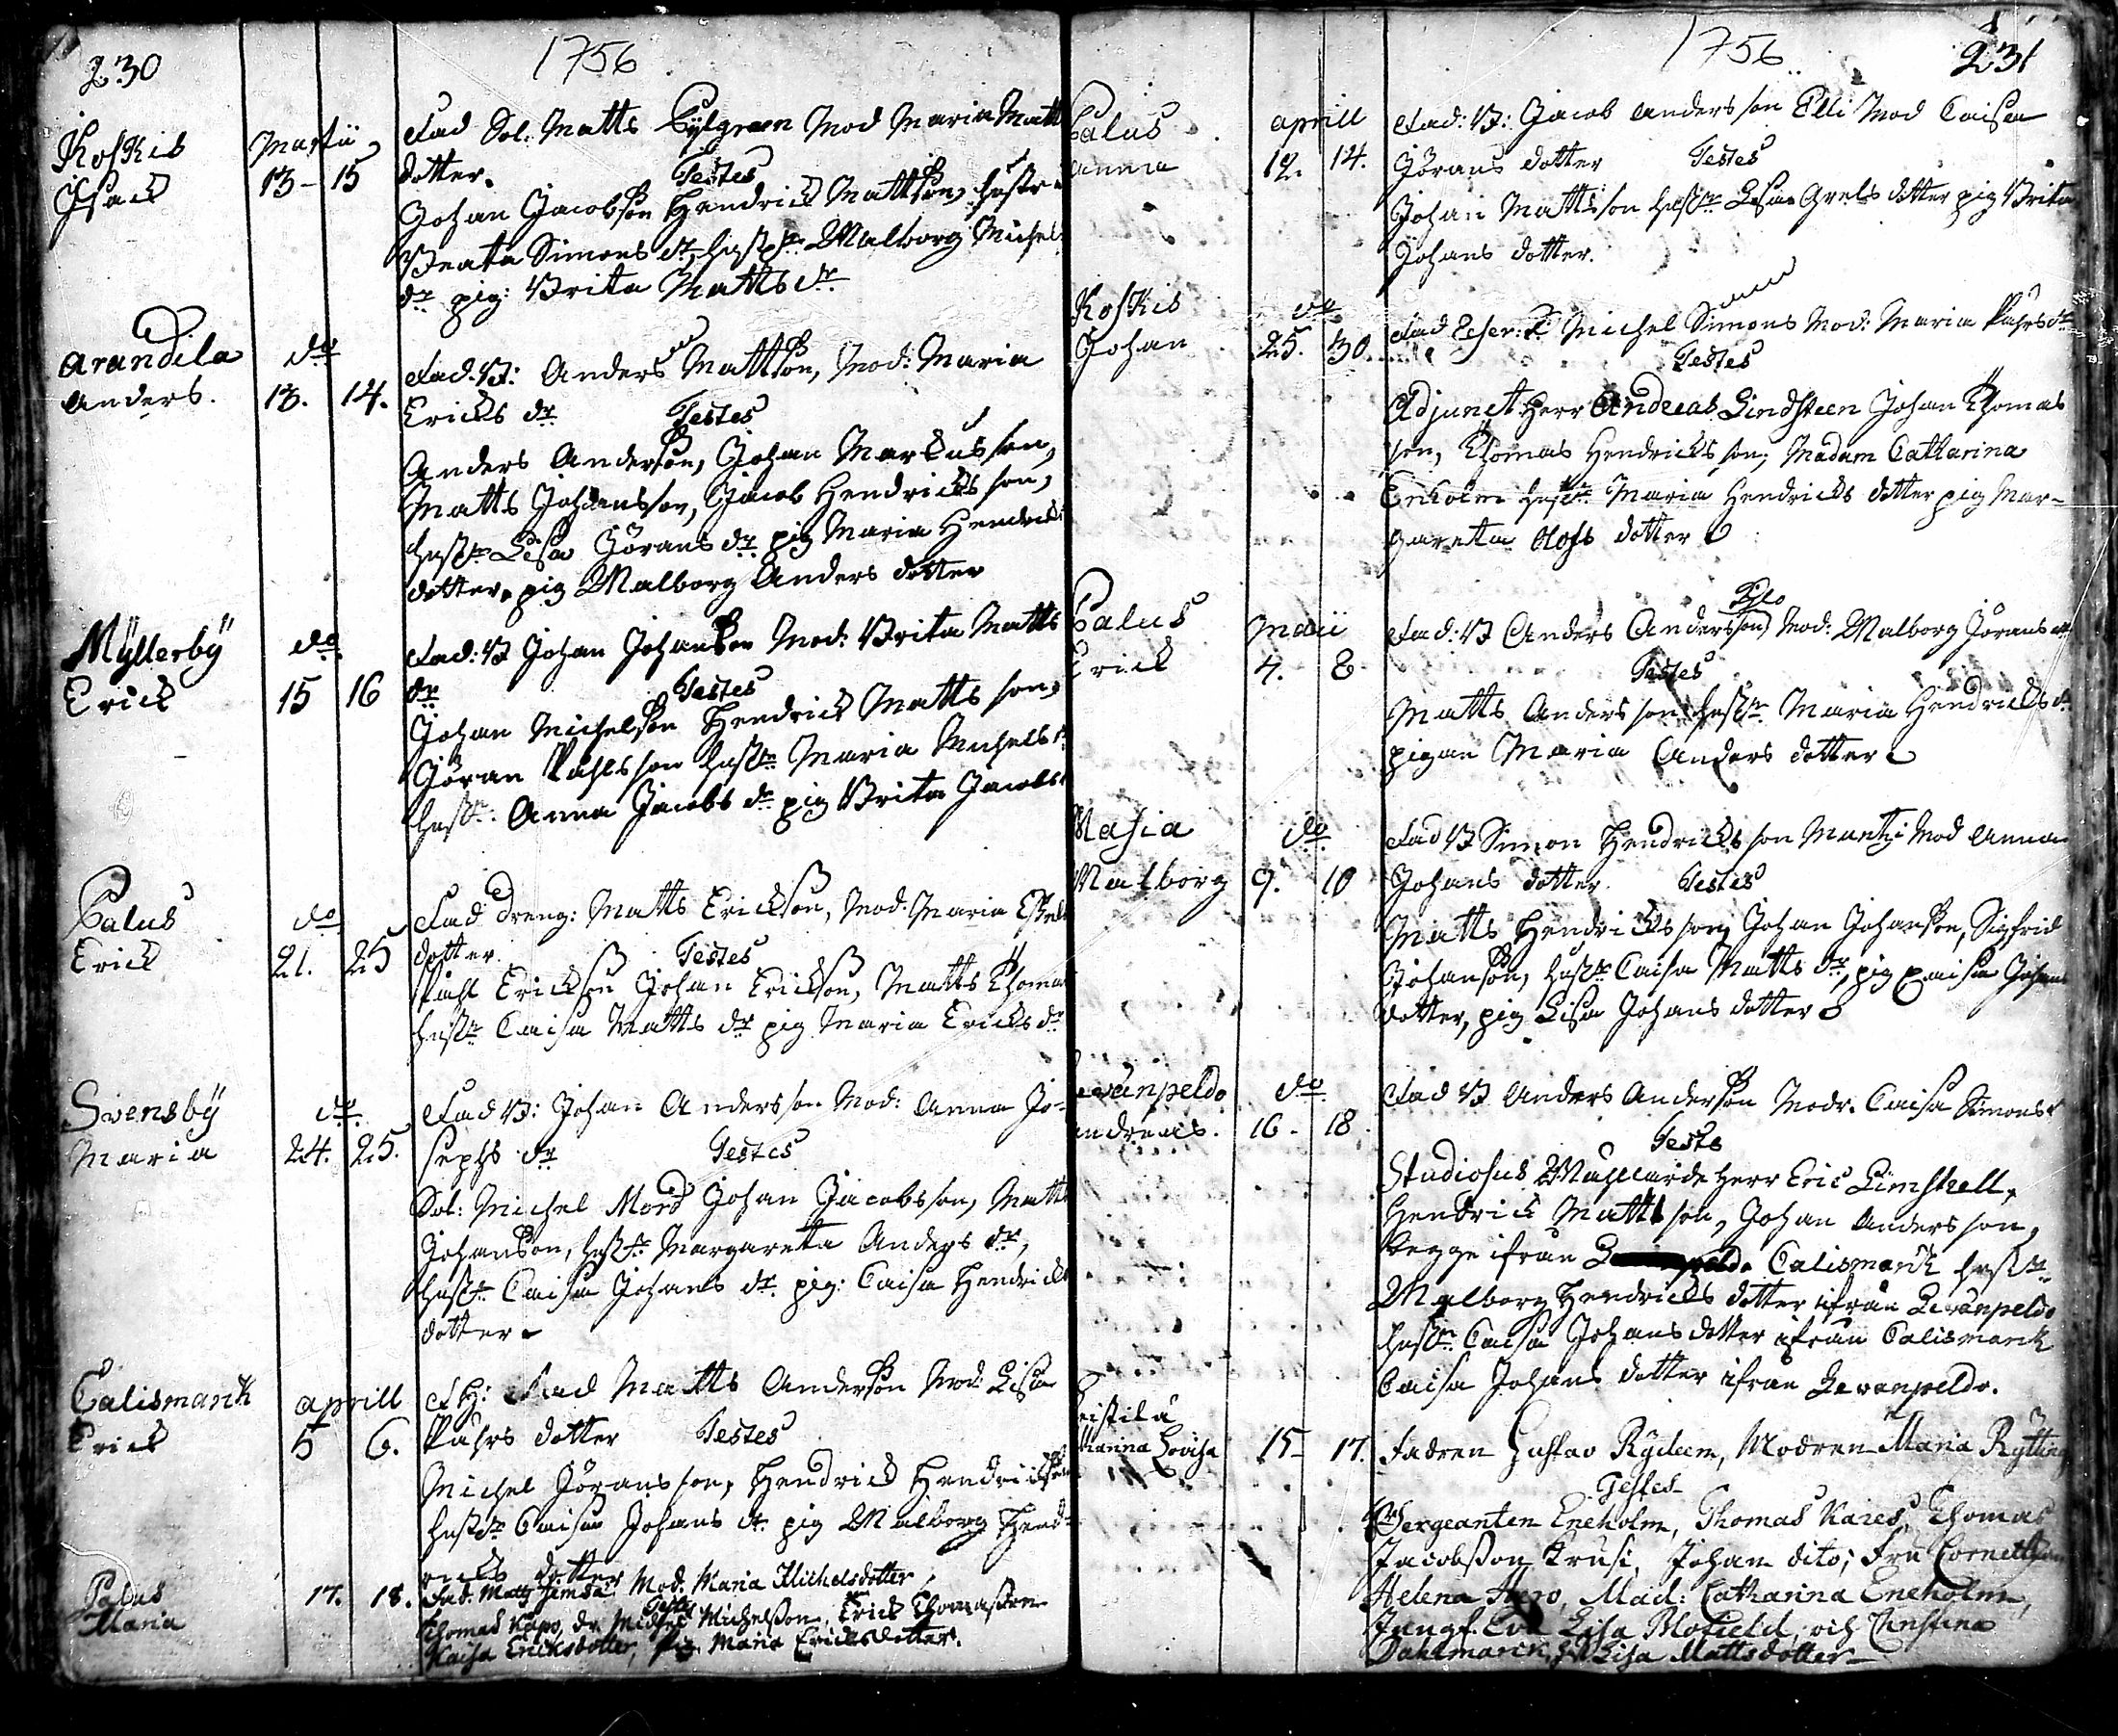 230
1756
Koskis Martii Fad Sol. Matts Mod Maria Matts
Isack 13 - 15 dotter. Testes
Johan Jacobsson Hendrick Mattsson, hustr
Beata Simons dr, hustr Walborg Michels
dr pig: Brita Matts dr
Arandila do Fad. B: Anders Mattsson, Mod: Maria
Anders. 13. 14. Ericks dr Testes
Anders Andersson, Johan Markusson,
Matts Johansson, Jacob Hendricksson,
hustr Lisa Jörans dr pig Maria Hendricks
dotter, pig Walborg Anders dotter
Myllerby do Fad: B Johan Johansson Mod: Brita Matts
Erick 15 16 dr Testes
Johan Michelsson Hendrick Matts son,
Jöran Påhlsson hustr Maria Michels
hustr. Anna Jacobs dr pig Brita Jacobs
Palus do Fad dreng: Matts Ericksson, Mod: Maria
Erick 21. 25 dotter. Testes
Påhl Ericksson Johan Ericksson, Matts Thomas
hustr Caisa Matts dr pig Maria Ericks dr
Svensby do Fad B: Johan Andersson Mod: Anna Jo-
Maria 24. 25. sephs dr Testes
Sol: Michel Mord Johan Jacobsson, Matts
Johansson, hustr Margareta Anders dr,
hustr Caisa Johans dr. pig: Caisa Hendricks
dotter
Calismark aprill Fad Matts Andersson Mod: Lisa
Erick 5 6. Påhrs dotter Testes
Michel Jöransson, Hendrick Hendricksson
hustr Caisa Johans dr. pig Walborg Hend-
ricks dotter
Palus 17. 18. Fad. Matts Mod. Maria Michelsdotter
Maria Testes
Thomas dr. Michel Michelsson, Erick Thomasson
Kaisa Ericksdotter, Pig. Maria Ericksdotter.
1756
231
Palus aprill Fad: B: Jacob Andersson Elli Mod Caisa
Anna 12. 14. Jörans dotter Testes
Johan Mattsson hustr Lisa Grels dotter pig Brita
Johans dotter.
Koskis do Fad Michel Simons Mod: Maria Påhrs dr
Johan 25. 30. Testes
Adjunct Herr Andreas Lindsteen Johan Thomas
son, Thomas Hendricksson, Madam Catharina
Enholm hustr Maria Hendricks dotter pig Mar-
gareta Olofs dotter
Palus Maii Fad: B Anders Andersson Mod: Walborg Jörans dr
Erick 4. 8 Testes
Matts Andersson hustr Maria Hendricks dr
pigan Maria Anders dotter
Masia do Fad B Simon Hendricksson Mantzi Mod Anna
Walborg 9. 10 Johans dotter Testes
Matts Hendricksson, Johan Johansson, Sigfrid
Johansson, hustr Caisa Matts dr, pig Caisa Johans
dotter, pig Lisa Johans dotter
Levanpeldo do Fad B Anders Andersson Modr. Caisa Simons
Andreas. 16 - 18 Teste
Studiosus Herr Eric Limstell,
Hendrick Mattsson, Johan Andersson,
begge ifrån Calismark hustr
Walborg Hendricks dotter ifrån Levanpeldo
hustr Caisa Johans dotter ifrån Calismark
Caisa Johans dotter ifrån Levanpeldo.
Cristila
tharina Lovisa 15 - 17. Fadren Gustav Rydeen, Modren Maria Rytting
Testes
Sergeanten Eneholm, Thomas Kares, Thomas
Jacobsson Krusi, Johan dito; Fru
Helena Mad: Catharina Eneholm,
Jungf. Eva Lisa Mofield, och Christina
Dahlmarck, Lisa Mattsdotter